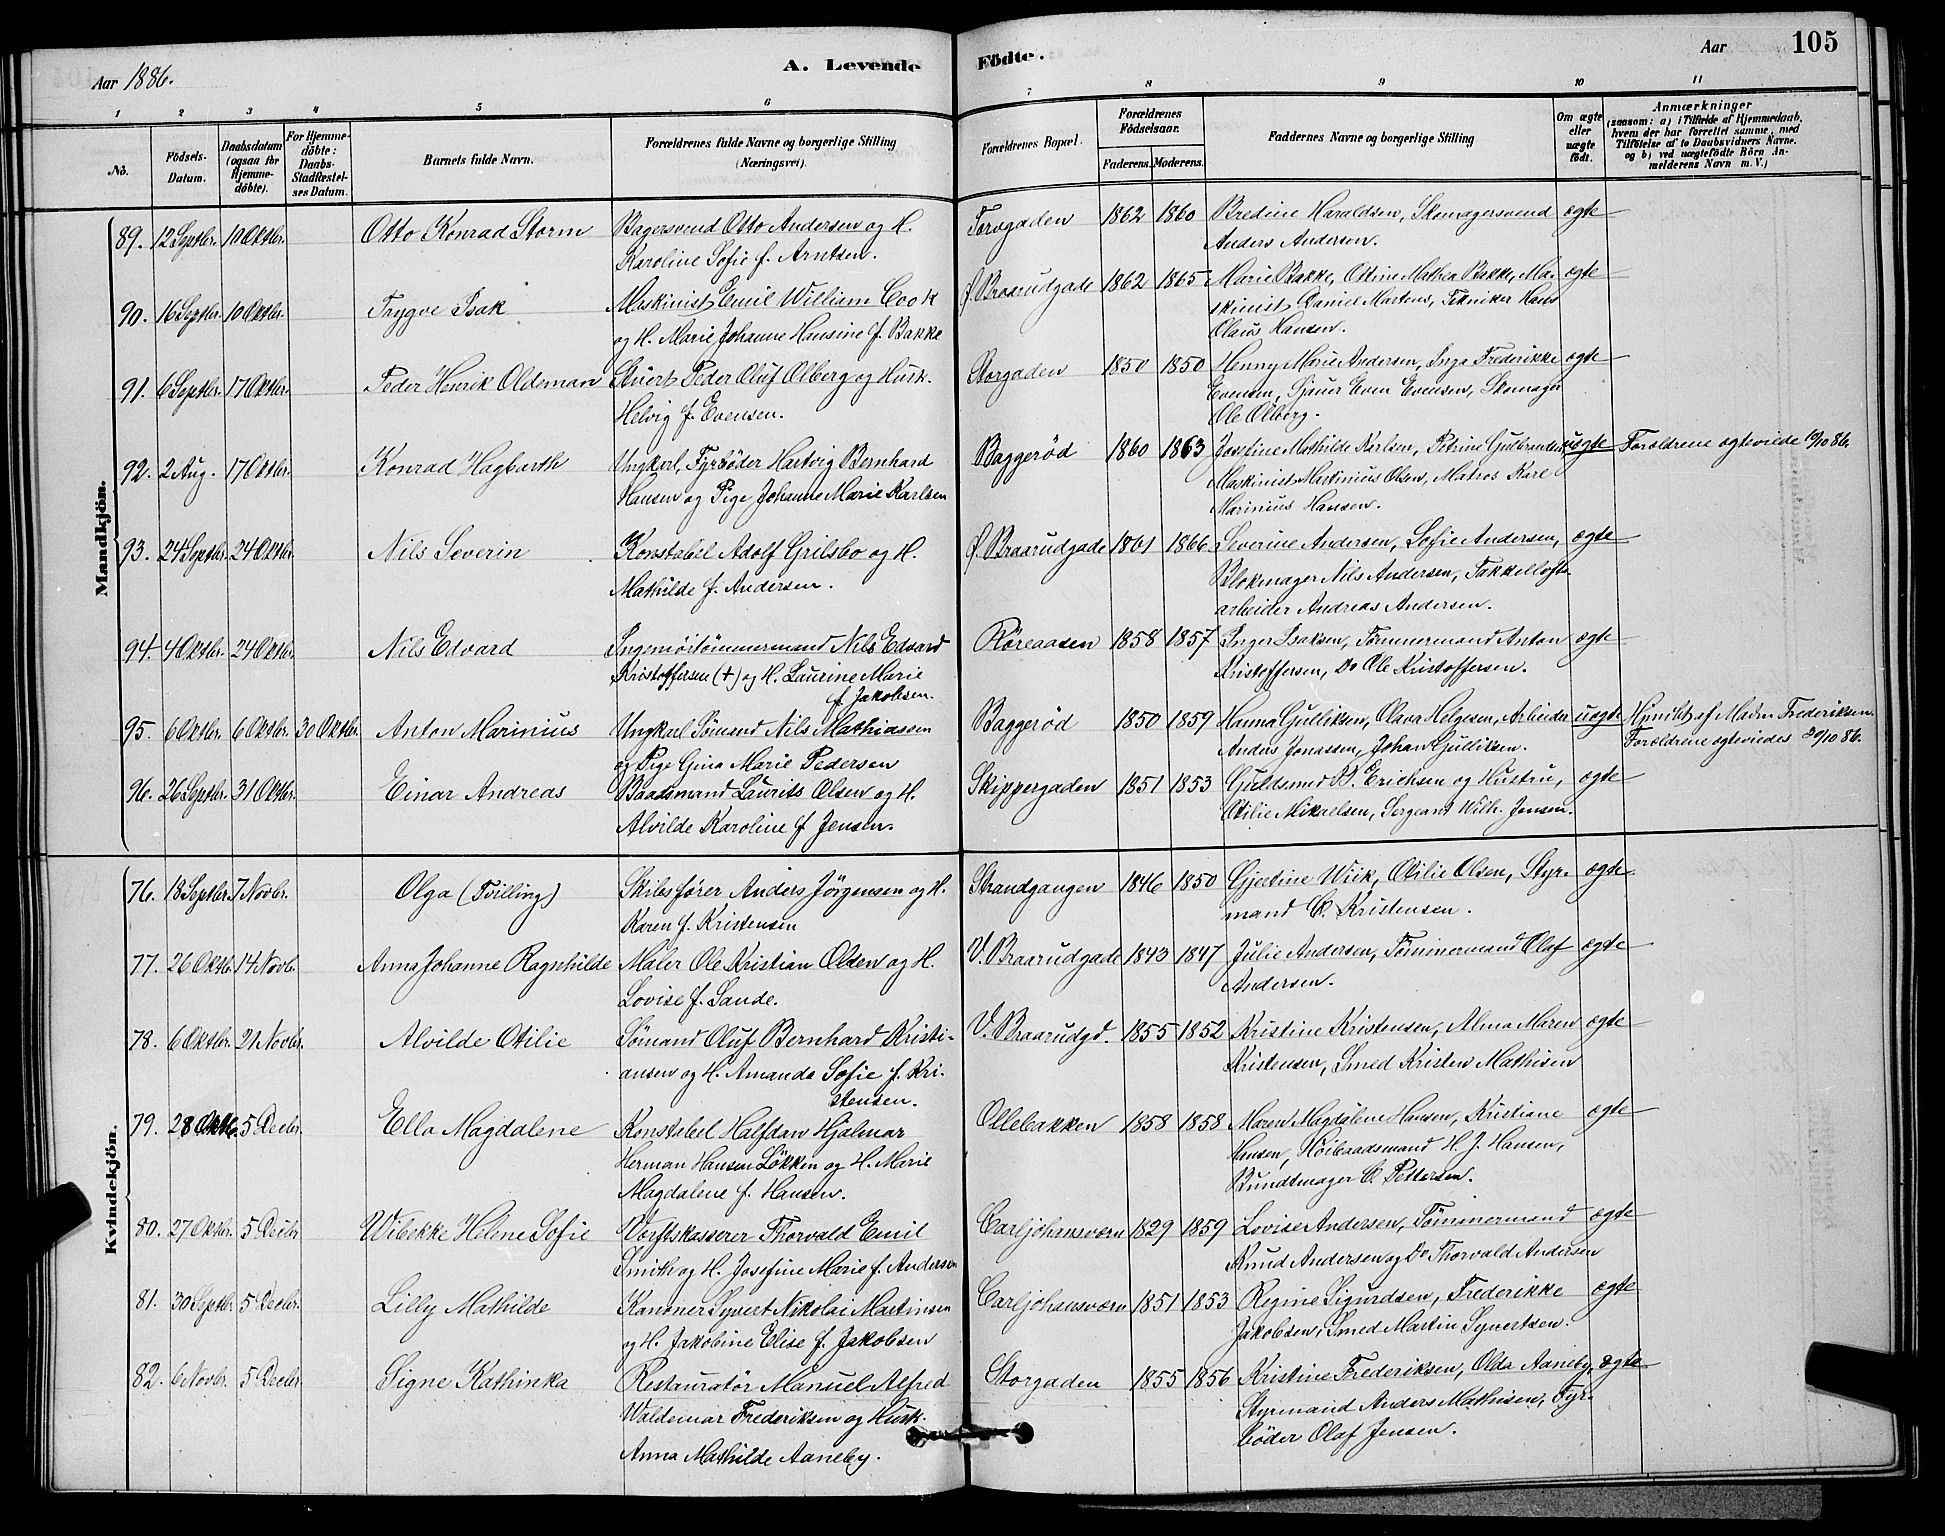 Aar 1886.
A. Levende
Fødte.
Aar
105
1 2 3 4 5 6 7 8 9 10 11
No.
Födsels-Datum.
Daabsdatum (ogsaa for Hjemme-döbte).
For Hjemme-döbte: Daabs-Stadfæstel-ses Datum.
Barnets fulde Navn.
Forældrenes fulde Navne og borgerlige Stilling (Næringsvei).
Forældrenes Bopæl.
Forældrenes Födselsaar.
Faderens. Moderens.
Faddernes Navne og borgerlige Stilling
Om ægte eller uægte födt.
Anmærkninger
(saasom: a) i Tilfælde af Hjemmedaab, hvem der har forrettet samme, med Tilföielse af to Daabsvidners Navne. og b) ved uægtefödte Börn An-melderens Navn m. V.)
Mandkjön.
89. 12 Septbr. 10 Oktbr. Otto Konrad Storm Bagersvend Otto Andersen og H. Torvgaden 1862 1860 Bredine Haraldsen, Skomagersvend ægte
Karoline Sofie f. Arntsen. Anders Andersen.
90. 16 Septbr. 10 Oktbr. Trygve Isak Maskinist Emil William Cook Ø. Braarudgade 1862 1865 Marie Bakke, Ottine Mathea Bakke, Ma- ægte
og H. Marie Johanne Hansine f. Bakke skinist Daniel Martens, Tekniker Hans
Olaus Hansen.
91. 6 Septbr. 17 Oktbr. Peder Henrik Oldeman Stuert Peder Oluf Olberg og Hustr. Storgaden 1850 1850 Henny Marie Andersen, Inga Frederikke ægte
Helvig f. Evensen. Evensen, Sjauer Even Evensen, Skomager
Ole Olberg.
92. 2 Aug. 17 Oktbr. Konrad Hagbarth Ungkarl, Fyrbøder Hartvig Bernhard Baggerød 1860 1863 Josefine Mathilde Karlsen, Petrine Gulbrandsen uægte Forældrene ægteviede 10/10 86.
Hansen og Pige Johanne Marie Karlsen Maskinist Martinius Olsen, Matros Kare
Marinius Hansen.
93. 24 Septbr. 24 Oktbr. Nils Severin Konstabel Adolf Grilsbo og H. Ø. Braarudgade 1861 1866 Severine Andersen, Sofie Andersen, ægte
Mathilde f. Andersen. Blokmager Nils Andersen, Takkellofts
arbeider Andreas Andersen.
94. 4 Oktbr. 24 Oktbr. Nils Edvard Ingeniörtömmermand Nils Edvard Røreaasen 1858 1857 Inger Isaksen, Tømmermand Anton ægte
Kristoffersen (+) og H. Laurine Marie Kristoffersen, Do Ole Kristoffersen.
f. Jakobsen.
95. 6 Oktbr. 6 Oktbr. 30 Oktbr. Anton Marinius Ungkarl Sømand Nils Mathiassen Baggerød 1850 1859 Hanna Gulliksen, Olava Helgesen, Arbeider uægte Hjmdbt af Madm Frederiksen.
og Pige Gina Marie Pedersen Anders Jonassen, Johan Gulliksen. Forældrene ægteviedes 30/10 86.
96. 26 Septbr. 31 Oktbr. Einar Andreas Baadsmand Laurits Olsen og H. Skippergaden 1851 1853 Guldsmed B. Erichsen og Hustru, ægte
Alvilde Karoline f Jensen. Otilie Mikaelsen, Sergeant Wilh. Jensen.
Kvindekjön.
76. 18 Septbr. 7 Novbr. Olga (Tvilling) Skibsfører Anders Jørgensen og H. Strandgangen 1846 1850 Gjertine Wiik, Otilie Olsen, Styr- ægte
Karen f. Kristensen mand C. Kristensen.
77. 26 Oktb. 14 Novb. Anna Johanne Ragnhilde Maler Ole Kristian Olsen og H. V. Braarudgade 1843 1847 Julie Andersen, Tømmermand Olaf ægte
Lovise f. Sande. Andersen.
78. 6 Oktbr. 21 Novbr. Alvilde Otilie Sømand Oluf Bernhard Kristi- V. Braarudgd. 1855 1852 Kristine Kristensen, Alma Maren ægte
ansen og H. Amanda Sofie f. Kri- Kristensen, Smed Kristen Mathisen
stensen.
79. 28 Oktb. 5 Decbr. Ella Magdalene Konstabel Halfdan Hjalmar Ollebakken 1858 1858 Maren Magdalene Hansen, Kristiane ægte
Herman Hansen Løkken og H. Marie Hansen, Høibaadsmand H. J. Hansen,
Magdalene f. Hansen. Bundtmager C. Pettersen.
80. 27 Oktbr. 5 Decbr Wibekke Helene Sofie Værftskasserer Thorvald Emil Carljohansværn 1829 1859 Lovise Andersen, Tømmermand ægte
Smith og H. Josefine Marie f. Andersen Knud Andersen og Do Thorvald Andersen
81. 30 Septbr 5 Decbr. Lilly Mathilde Kanoner Syvert Nikolai Martinsen Carljohansværn 1851 1853 Regine Sigurdsen, Frederikke ægte
og H. Jakobine Elise f. Jakobsen Jakobsen, Smed Martin Syvertsen.
82. 6 Novbr. 5 Decbr. Signe Kathinka Restauratør Manuel Alfred Storgaden 1855 1856 Kristine Frederiksen, Olda Aaneby, ægte
Waldemar Frederiksen og Hustr. Styrmand Anders Mathisen, Fyr-
Anna Mathilde Aaneby. bøder Olaf Jensen.